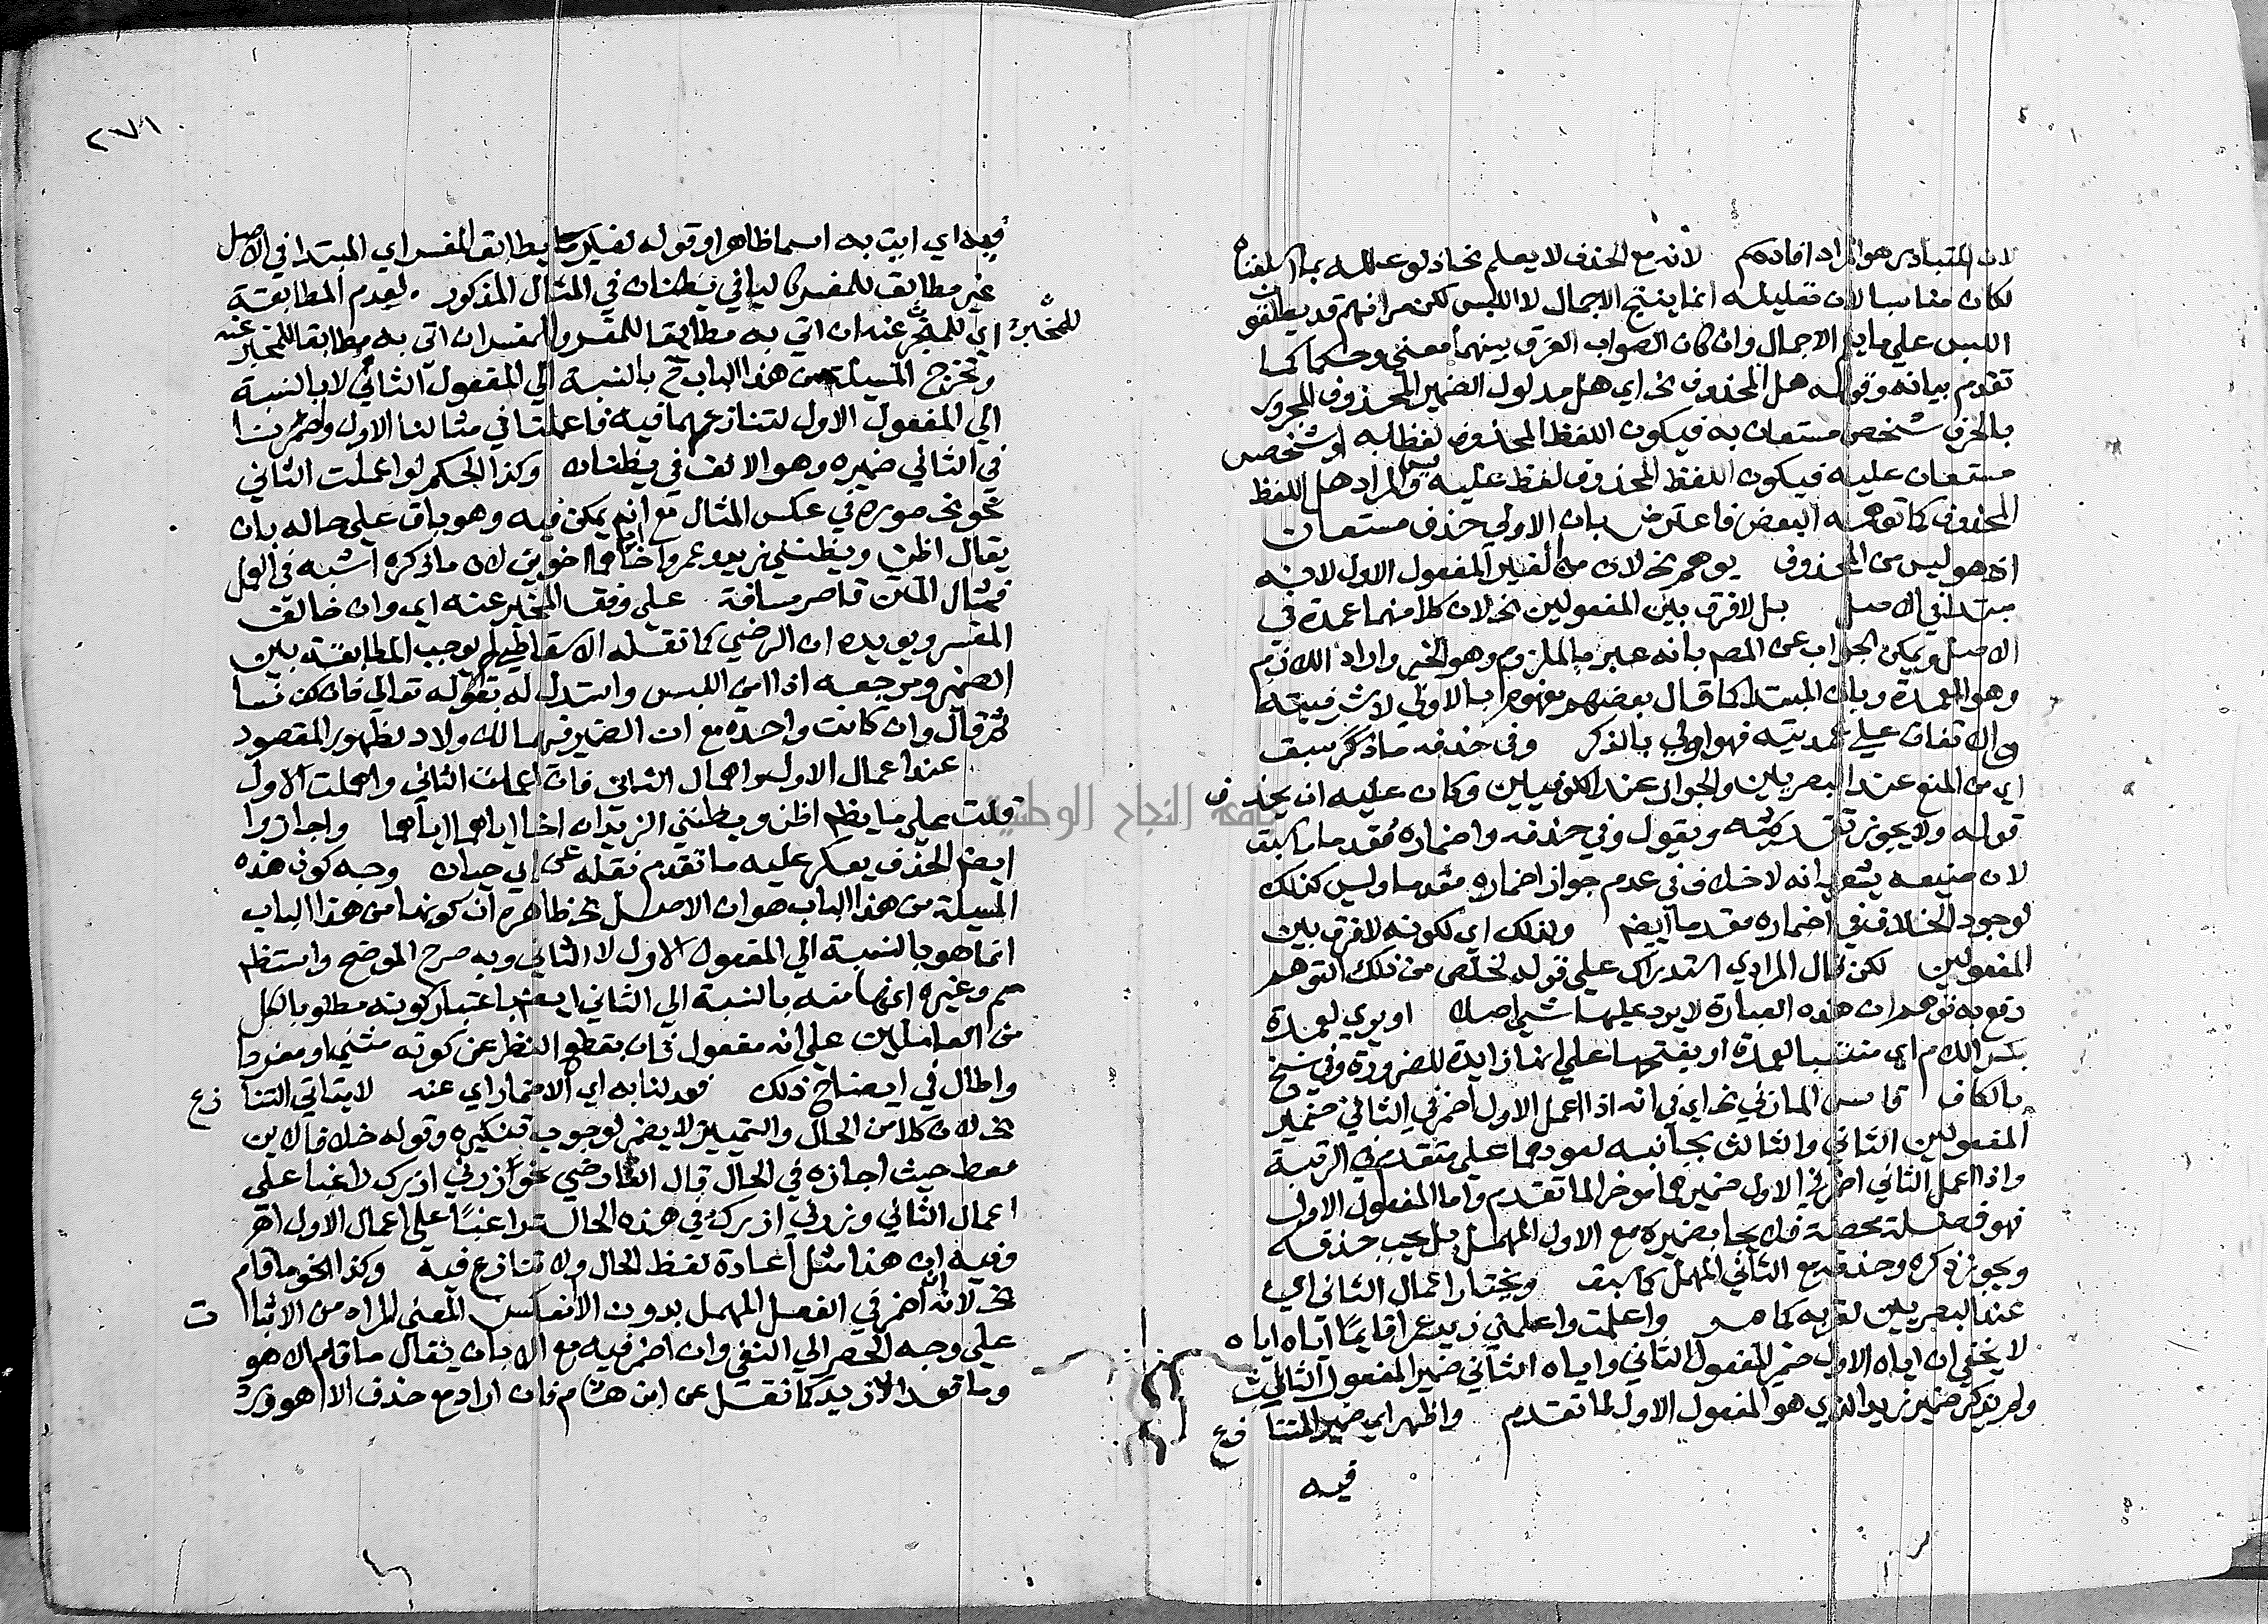 لان المتبادر هو المراد افادكم لانه مع الحذف لا يعلم نخ اذ لو علله بما اسلفناه
لكان مناسبا لان تعليله انما ينتج الاجمال لا اللبس لكن مرانهم قد يطلقون
اللبس علي ما يعم الاجمال وان كان الصواب الفرق بينهما معني وحكما كما
تقدم بيانه وقوله هل المحذوف نخ اي هل مدلول الضمير المحذوف المجرور
بالحرف شخص مستعان به فيكون اللفظ المحذوف لفظ به او شخص
مستعان عليه فيكون اللفظ المحذوف لفظ عليه وليس المراد هل اللفظ
المحذوف كما توهمه البعض فاعترض بان الاولي حذف مستعان
اذ هو ليس من المحذوف يوهم نخ لان من لفير المفعول الاول لانه
مبتدا في الاصل بل لا فرق بين المفعولين نخ لان كلا منهما عمدة في
الاصل ويمكن الجواب عن المصم بانه عبر بالملزوم وهو الخبر واراد اللازم
وهو العمدة وبان المبتدا كما قال بعضهم مفهوم بالاولي لاشرفيته
والاتفاق علي عمديته فهو اولي بالذكر وفي حذفه ما ذكر سبق
اي من المنع عند البصريين والجواز عند الكوفيين وكان عليه ان يحذف
قوله ولا يجوز تقديمه ويقول وفي حذفه واضماره مقدما ما سبق
لان صنيعه يشعر انه لا خلاف في عدم جواز اضماره مقدما وليس كذلك
لوجود الخلاف في اضماره مقدما ايضم ولذلك اي لكونه لا فرق بين
المفعولين لكن قال المرادي استدراك علي قوله تخلص من ذلك التوهم
دفع به توهم ان هذه العبارة لا يرد عليها شي اصلا او يري لعمدة
بكسر اللام اي منتسبا لعمدة او بفتحها علي انها زايدة للضرورة وفي نسخ
بالكاف قاس المازني نخ اي في انه اذا اعمل الاول اضمر في الثاني ضمير
المفعولين الثاني والثالث بجانبه لعودهما علي متقدم في الرتبة
واذا اعمل الثاني اضمر في الاول ضميرهما موخر الما تقدم واما المفعول الاول
فهو فضلة محضة فلا يجا بضميره مع الاول المهمل بل يجب حذفه
ويجوز ذكره وحذفه مع الثاني المهمل كما سبق ويختار اعمال الثاني اي
عند البصريين لقربه كما مر واعلمت واعلمني زيد عمرا قايما اياه اياه
لا يخفي ان اياه الاول ضمير المفعول الثاني واياه الثاني ضمير المفعول الثالث
ولم يذكر ضمير زيد الذي هو المفعول الاول لما تقدم واظهر اي ضمير المتنازع
فيه
٢٧١
فيه اي ايت به اسما ظاهرا وقوله لغير ما يطابق المفسر اي المبتدا في الاصل
غير مطابق للمفسر كاليا في يظنان في المثال المذكور . لعدم المطابقة
اي للمخبر عنه ان اتي به مطابقا للمفسر وللمفسر ان اتي به مطابقا للمخبر عنه
للمخبر
وتخرج المسيلة من هذا الباب ح بالنسبة الي المفعول الثاني لا بالنسبة
الي المفعول الاول لتنازعهما فيه فاعملنا في مثالنا الاول واضمرنا
في الثاني ضميره وهو الالف في يظنان وكذا الحكم لو اعملت الثاني
نحو نخ صوره في عكس المثال مع انه يمكن فيه وهو باق علي حاله بان
يقال اظن ويظنني زيد وعمرا اخا اياهما اخوين لان ما ذكره اشبه في العمل
فمثال المتن قاصر مسافة علي وفق المخبر عنه اي وان خالف
المفسر ويويده ان الرضي كما نقله الاسقاطي لم يوجب المطابقة بين
الضمير ومرجعه اذا امن اللبس واستدل له بقوله تعالي فان كن نسا
ثم قال وان كانت واحدة مع ان الضميرفيهما للاولاد لظهور المقصود
عند اعمال الاول واهمال الثاني فان اعملت الثاني واهملت الاول
قلت علي ما يظهر اظن ويظنني الزيدان اخا اياهما اياهما واجازوا
ايضم الحذف يعكر عليه ما تقدم نقله عن ابي حيان وجه كون هذه
المسيلة من هذا الباب هو ان الاصل نخ ظاهره ان كونها من هذا الباب
انما هو بالنسبة الي المفعول الاول لا الثاني وبه صرح الموضح واستظهر
سم وغيره انها منه بالنسبة الي الثاني ايضا باعتبار كونه مطلوبا لكل
من العاملين علي انه مفعول ثان بقطع النظر عن كونه مثني او مفردا
واطال في ايضاح ذلك عدلنا به اي الاضمار اي عنه لا يتاتي التنازع
نخ لان كلا من الحال والتمييز لا يضمر لوجوب تنكيره وقوله خلافا لابن
معط حيث اجازه في الحال قال الفارضي نحو زرني ازرك راغبا علي
اعمال الثاني وزرني ازرك في هذه الحال راغبا علي اعمال الاول اهر
وفيه ان هذا مثل اعادة لفظ الحال ولا تنازع فيه وكذا نحو ما قام
نخ لانه اضمر في الفعل المهمل بدون الا انعكس المعني المراد من الاثبات
علي وجه الحصر الي النفي وان اضمر فيه مع الا بان يقال ما قام الا هو
وما قعد الا زيد كما نقل عن ابن هشام فان اراد مع حذف الا هو ورد
جامعة النجاح الوطنية